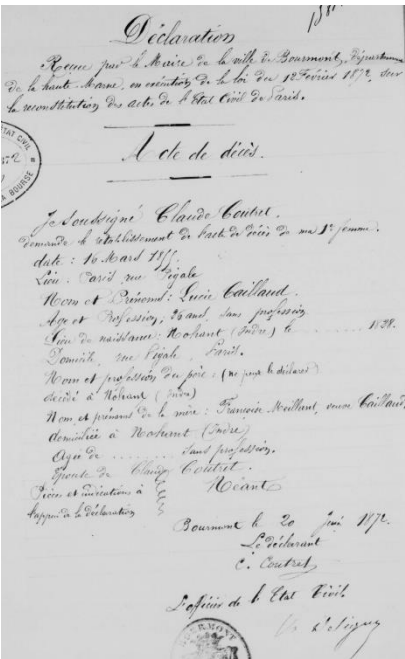 Déclaration
Reçue par le Maire de la ville de Bourmont, Département
de la haute-Marne, en exécution de la loi du 12 Février 1872, sur
la reconstitution des actes de l'Etat Civil de Paris.
Acte de décès.
ETAT CIVIL
BOURSE
Je soussigné Claude Coutret.
demande le rétablissement de l'acte de décès de ma 1re femme.
date : 16 Mars
Lieu. Paris rue Pigale
Nom et Prénoms : Lucie Caillaud.
Age et Profession ; ans, sans profession
Lieu de naissance : Nohant (Indre) le ........ 1828.
Domicile, rue Pigale, Paris.
Nom et profession du père : (ne peux le déclarer)
décédé à Nohant (Indre)
Nom et prénoms de la mère : Françoise Meillant, veuve Caillaud,
domiciliée à Nohant (Indre)
Agée de ........ sans profession.
Epouse de Claude Coutret.
Pièces et indications à
l'appui de la déclaration
Néant
Bourmont le 20 Juin 1872.
Le déclarant
C. Coutret
L'officier de l'Etat Civil.
BOURMONT